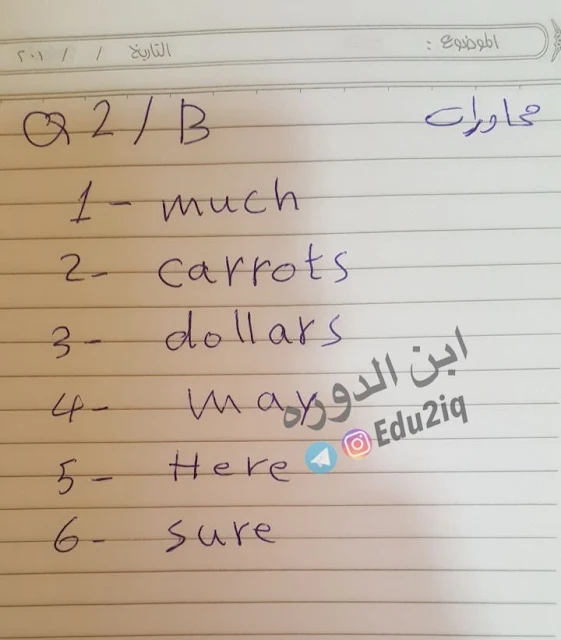 الموضوع :
التاريخ / / ٢٠١
Q 2 / B
محاورات
1 - much
2 - carrots
3 - dollars
4 - may
5 - Here
6 - sure
ابن الدوره
Edu2iq